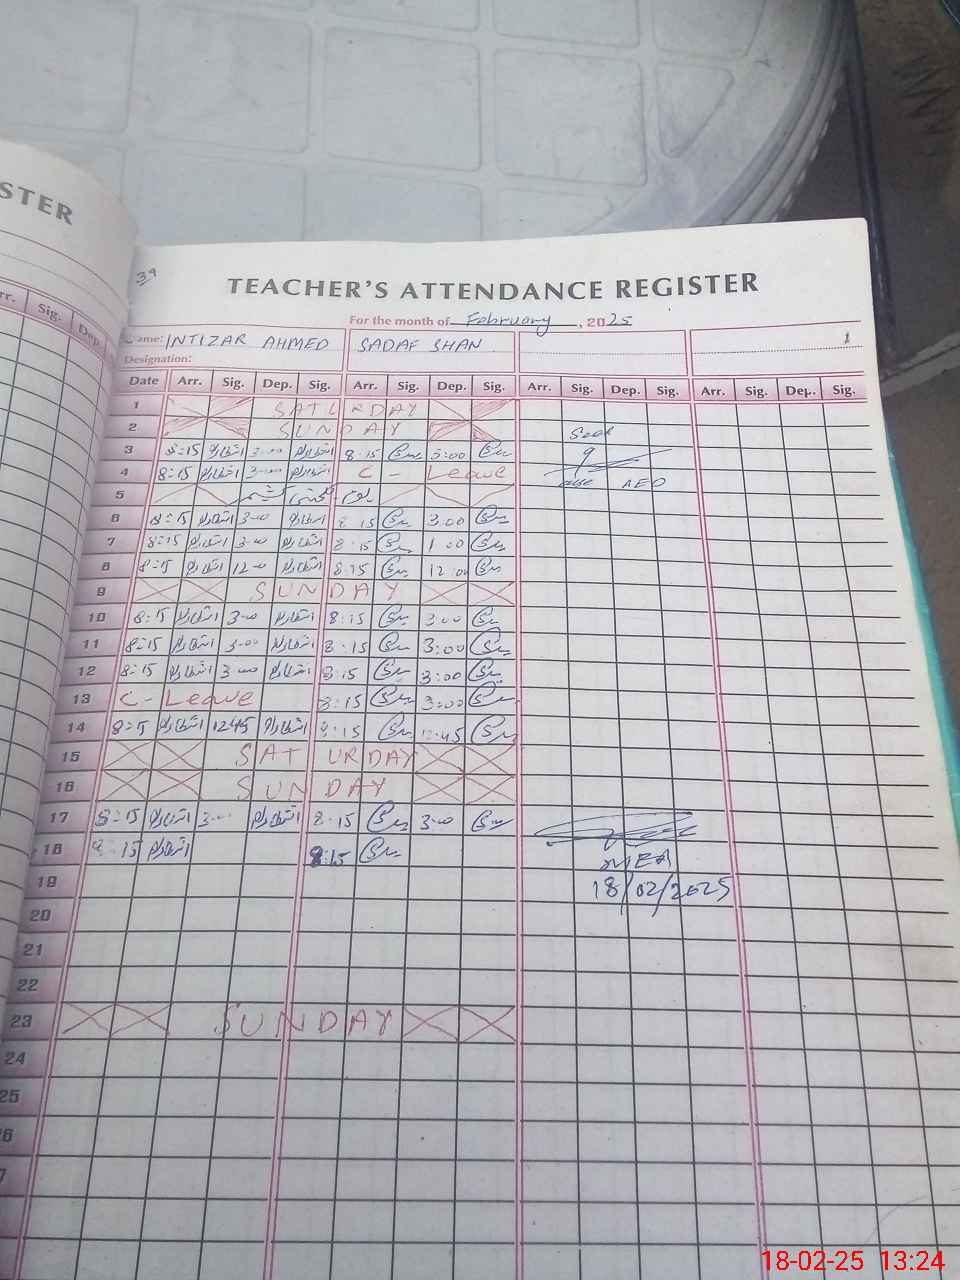 STER
39
TEACHER'S ATTENDANCE REGISTER
For the month of February, 2025
Name: INTIZAR AHMED SADAF SHAN 1
Designation:
Arr. Sig. Dep.
Date Arr. Sig. Dep. Sig. Arr. Sig. Dep. Sig. Arr. Sig. Dep. Sig. Arr. Sig. Dep. Sig.
1 SATURDAY
2 SUNDAY
3 8:15 انتظار 3:00 انتظار 8:15 3:00
4 8:15 انتظار 3:00 انتظار C - Leave
5 یوم یکجہتی کشمیر
6 8:15 انتظار 3:00 انتظار 8:15 3:00
7 8:15 انتظار 3:00 انتظار 8:15 1:00
8 8:15 انتظار 12:00 انتظار 8:15 12:00
9 SUNDAY
10 8:15 انتظار 3:00 انتظار 8:15 3:00
11 8:15 انتظار 3:00 انتظار 8:15 3:00
12 8:15 انتظار 3:00 انتظار 8:15 3:00
13 C - Leave 8:15 3:00
14 8:15 انتظار 12:45 انتظار 8:15 12:45
15 SATURDAY
16 SUNDAY
17 8:15 انتظار 3:00 انتظار 8:15 3:00
18 8:15 انتظار 8:15
MEA
19 18/02/2025
20
21
22
23 SUNDAY
24
25
26
7
AEO
18-02-25 13:24